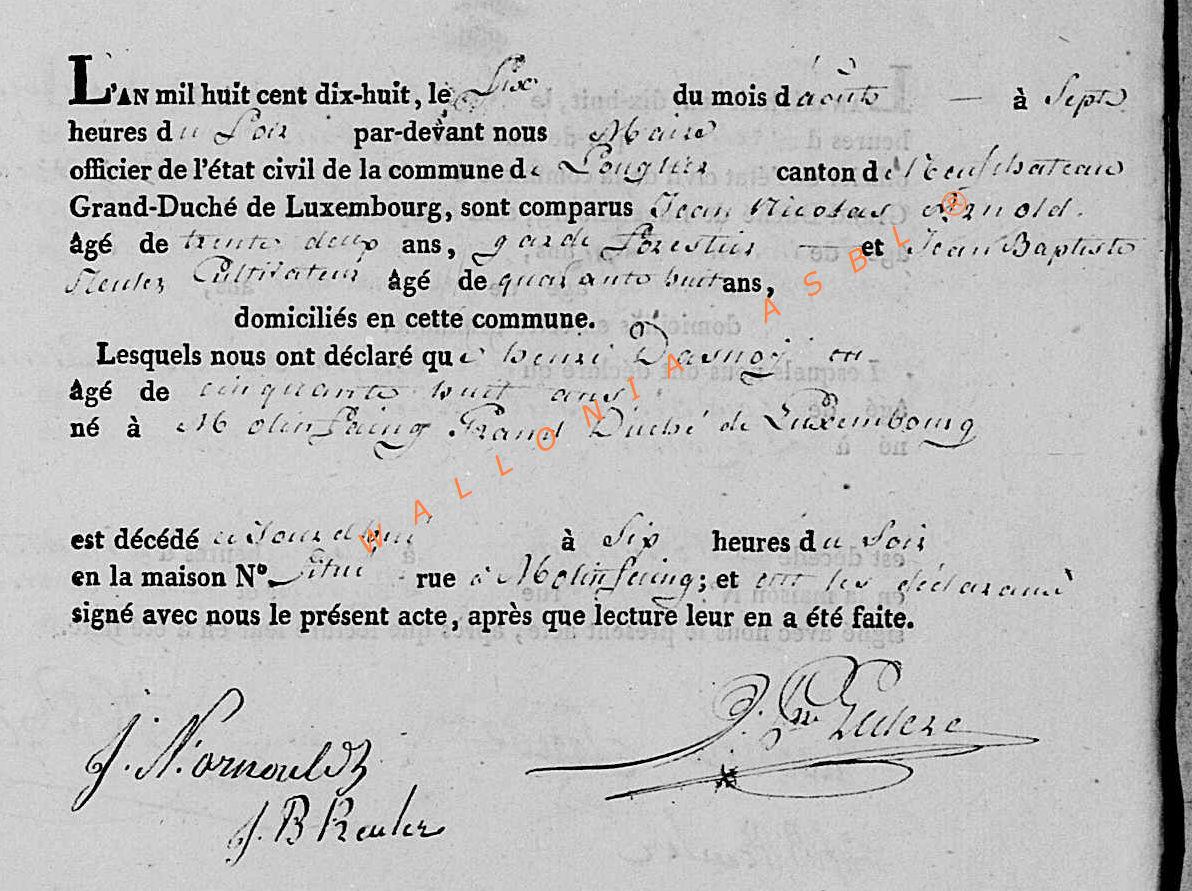 L'AN mil huit cent dix-huit, le Six du mois d août — à Sept
heures du Soir par-devant nous Maire
officier de l'état civil de la commune de Longlier canton de Neufchateau
Grand-Duché de Luxembourg, sont comparus Jean Nicolas Arnold.
âgé de trente deux ans, garde forestier — et Jean Baptiste
Cultivateur âgé de quarante huit ans,
domiciliés en cette commune.
Lesquels nous ont déclaré que henri Dasnoy en
âgé de cinquante huit ans
né à Molinfaing Grand Duché de Luxembourg
est décédé aujourdhui à Six heures du Soir
en la maison N° Situé rue à Molinfaing; et ont les déclarans
signé avec nous le présent acte, après que lecture leur en a été faite.
J. N. arnould
J. B
WALLONIA ASBL ®